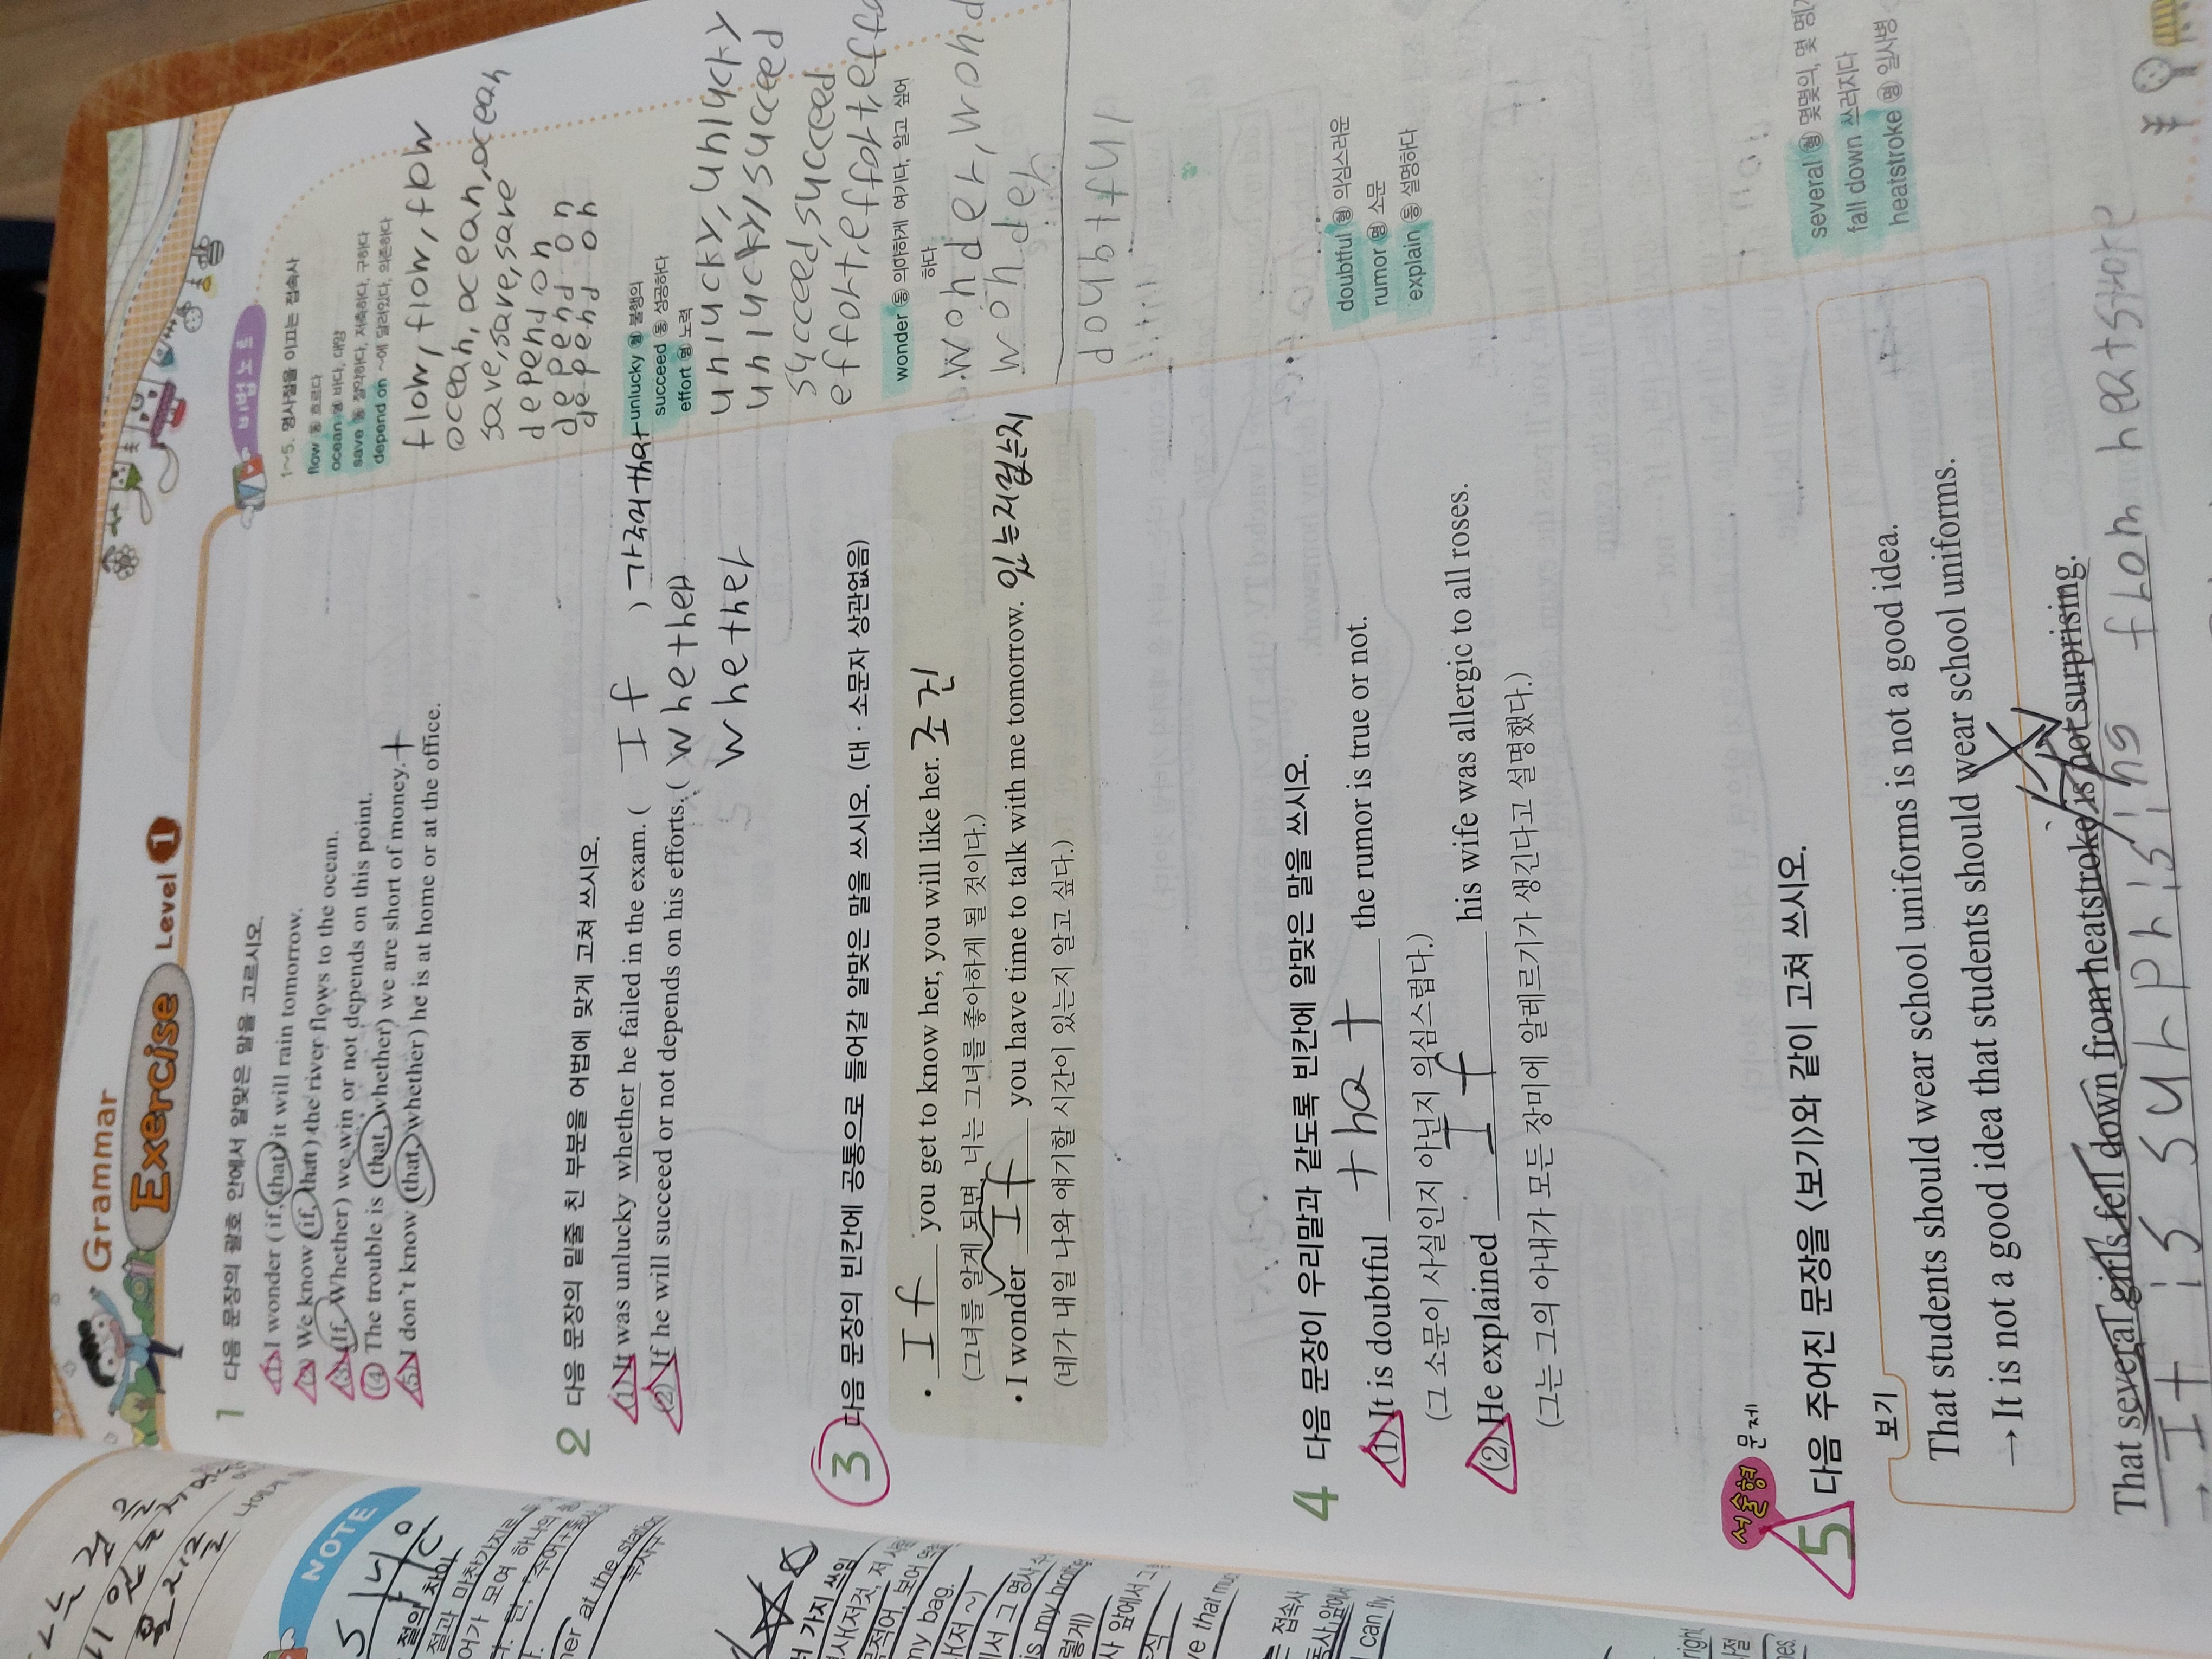 Grammar
Exercise Level 1
1 다음 문장의 괄호 안에서 알맞은 말을 고르시오.
(1) I wonder ( if, that ) it will rain tomorrow.
(2) We know ( if, that ) the river flows to the ocean.
(3) (If, Whether) we win or not depends on this point.
(4) The trouble is (that, whether) we are short of money.
(5) I don't know (that, whether) he is at home or at the office.
2 다음 문장의 밑줄 친 부분을 어법에 맞게 고쳐 쓰시오.
(1) It was unlucky whether he failed in the exam. ( If ) 가주어 that
(2) If he will succeed or not depends on his efforts. ( Whether
Whether
3 다음 문장의 빈칸에 공통으로 들어갈 알맞은 말을 쓰시오. (대·소문자 상관없음)
• If you get to know her, you will like her. 조건
(그녀를 알게 되면, 너는 그녀를 좋아하게 될 것이다.)
• I wonder If you have time to talk with me tomorrow. 있는지없는지
(네가 내일 나와 얘기할 시간이 있는지 알고 싶다.)
4 다음 문장이 우리말과 같도록 빈칸에 알맞은 말을 쓰시오.
(1) It is doubtful that the rumor is true or not.
(그 소문이 사실인지 아닌지 의심스럽다.)
(2) He explained If his wife was allergic to all roses.
(그는 그의 아내가 모든 장미에 알레르기가 생긴다고 설명했다.)
서술형 문제
5 다음 주어진 문장을 <보기>와 같이 고쳐 쓰시오.
보기
That students should wear school uniforms is not a good idea.
→ It is not a good idea that students should wear school uniforms.
That several girls fell down from heatstroke is not surprising.
→ It is surprising from heatstroke
비법 노트
1~5. 명사절을 이끄는 접속사
flow 동 흐르다
ocean 명 바다, 대양
save 동 절약하다, 저축하다, 구하다
depend on ~에 달려있다, 의존하다
flow, flow, flow
ocean, ocean, ocean
save, save, save
depend on
depend on
depend on
unlucky 형 불행의
succeed 동 성공하다
effort 명 노력
unlucky, unlucky
unlucky, succeed
succeed, succeed
effort, effort, effo
wonder 동 의아하게 여기다, 알고 싶어
하다
wonder, wond
wonder
doubtful
doubtful 형 의심스러운
rumor 명 소문
explain 동 설명하다
several 형 몇몇의, 몇 명
fall down 쓰러지다
heatstroke 명 일사병
NOTE
절의 차이
at the station
가지 쓰임
my bag.
is my brot
can fly.